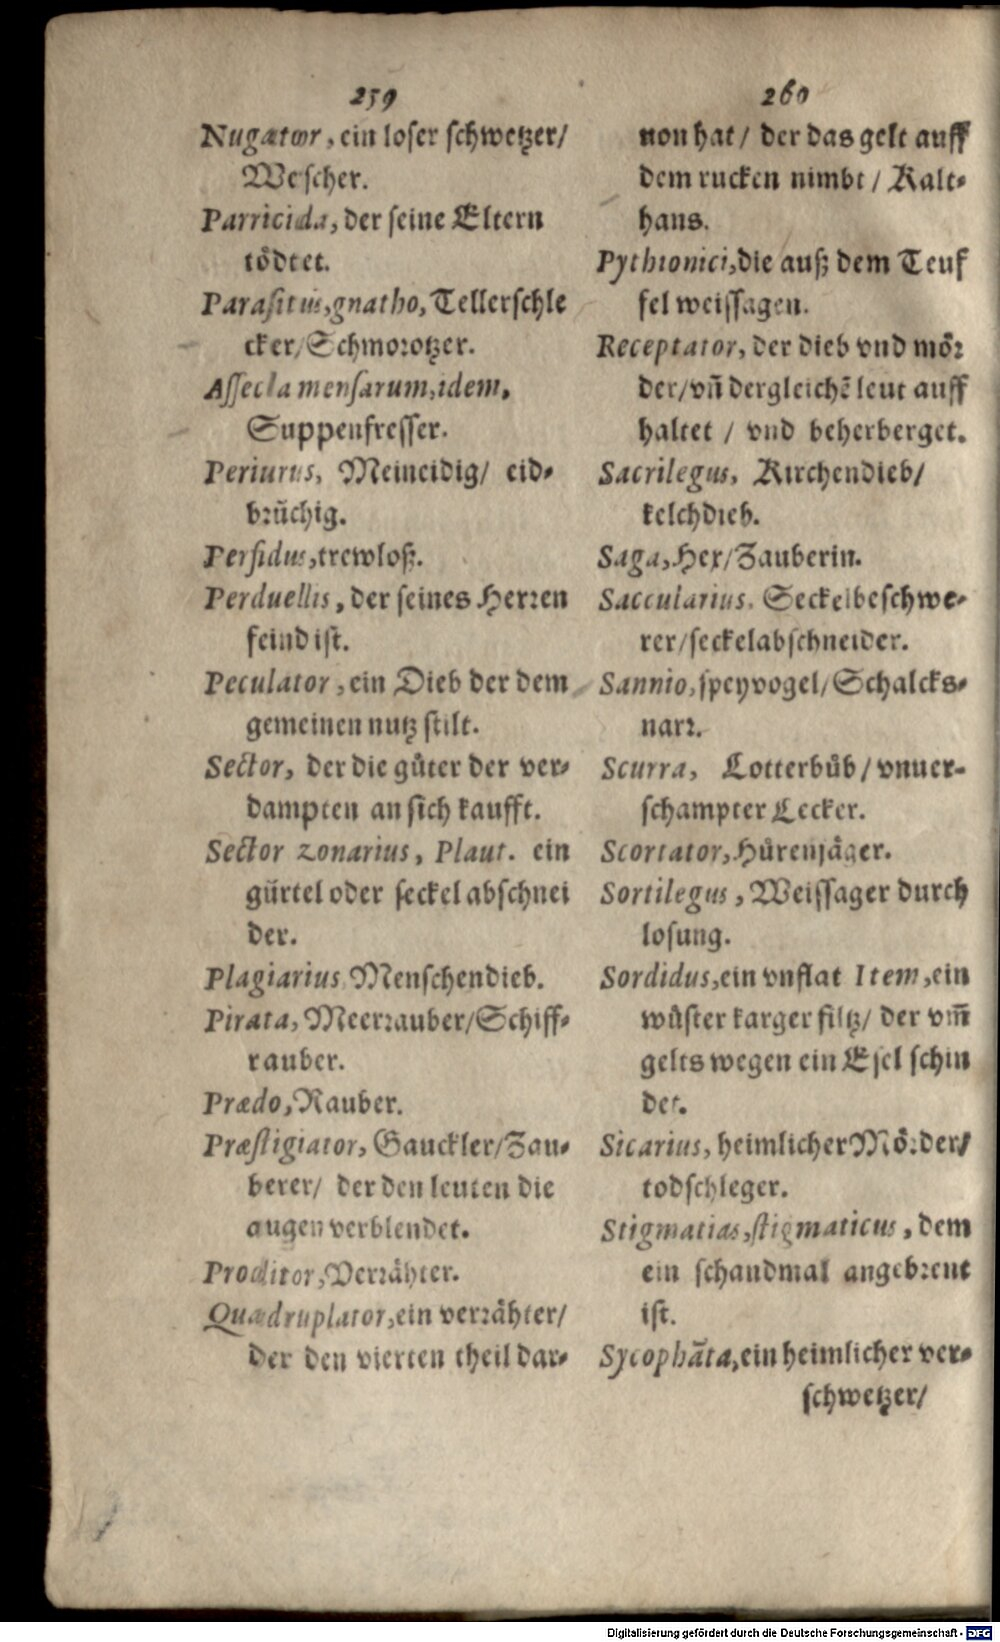 259
Nugator, ein loser schwetzer/
Wescher.
Parricida, der seine Eltern
tödtet.
Parasitus, gnatho, Tellerschle
cker/Schmorotzer.
Assecla mensarum, idem,
Suppenfresser.
Periurus, Meineidig/ eid⸗
brüchig.
Perfidus, trewloß.
Perduellis, der seines Herren
feind ist.
Peculator, ein Dieb der dem
gemeinen nutz stilt.
Sector, der die gůter der ver⸗
dampten an sich kaufft.
Sector zonarius, Plaut. ein
gürtel oder seckel abschnei
der.
Plagiarius Menschendieb.
Pirata, Meerrauber/Schiff⸗
rauber.
Prædo, Rauber.
Præstigiator, Gauckler/Zau⸗
berer/ der den leuten die
augen verblendet.
Proditor, Verrähter.
Quadruplator, ein verrähter/
der den vierten theil dar⸗
260
non hat/ der das gelt auff
dem rucken nimbt/ Kalt⸗
hans.
Pythionici, die auß dem Teuf
fel weissagen.
Receptator, der dieb vnd mör
der/vn̄ dergleichẽ leut auff
haltet / vnd beherberget.
Sacrilegus, Kirchendieb/
kelchdieb.
Saga, Hex/Zauberin.
Saccularius. Seckelbeschwe⸗
rer/seckelabschneider.
Sannio, speyvogel/Schalcks⸗
narr.
Scurra, Lotterbůb/ vnuer⸗
schampter Lecker.
Scortator, Hůrenjäger.
Sortilegus, Weissager durch
losung.
Sordidus, ein vnflat Item, ein
wůster karger filtz/ der vm̄
gelts wegen ein Esel schin
det.
Sicarius, heimlicher Mörder/
todschleger.
Stigmatias, stigmaticus, dem
ein schandmal angebrent
ist.
Sycophãta, ein heimlicher ver⸗
schwetzer/
Digitalisierung gefördert durch die Deutsche Forschungsgemeinschaft - DFG